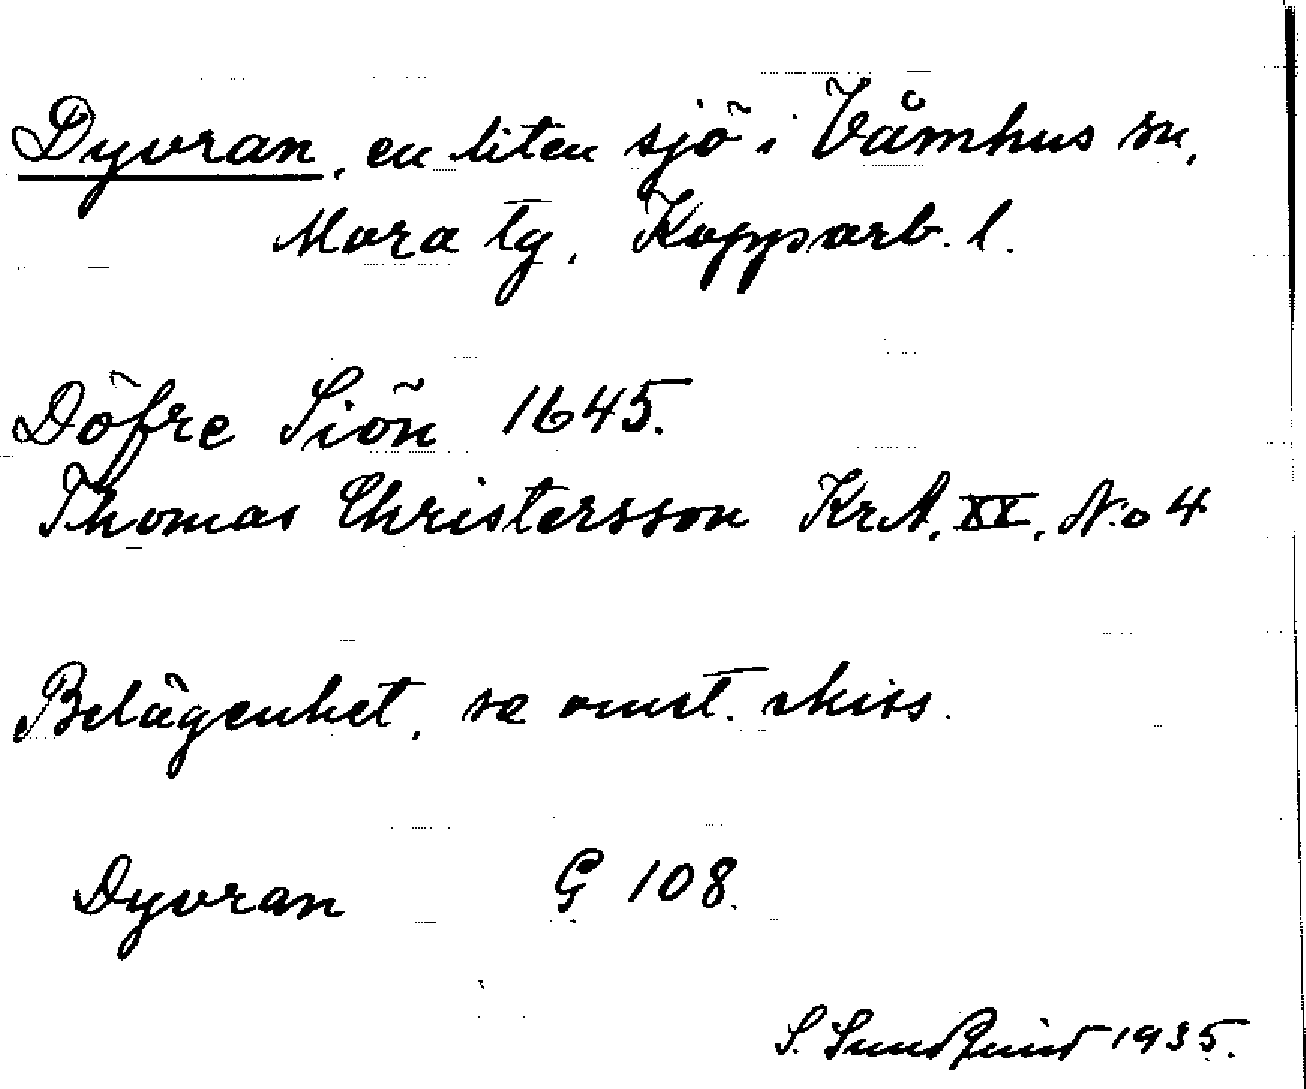 Dyvran, en liten sjö i Våmhus sn,
Mora tg, Kopparb. l.
Döfre Siön 1645.
Thomas Christersson KrA, XV, No 4
Belägenhet, se omst. skiss.
Dyvran G 108.
S. Sundquist 1935.